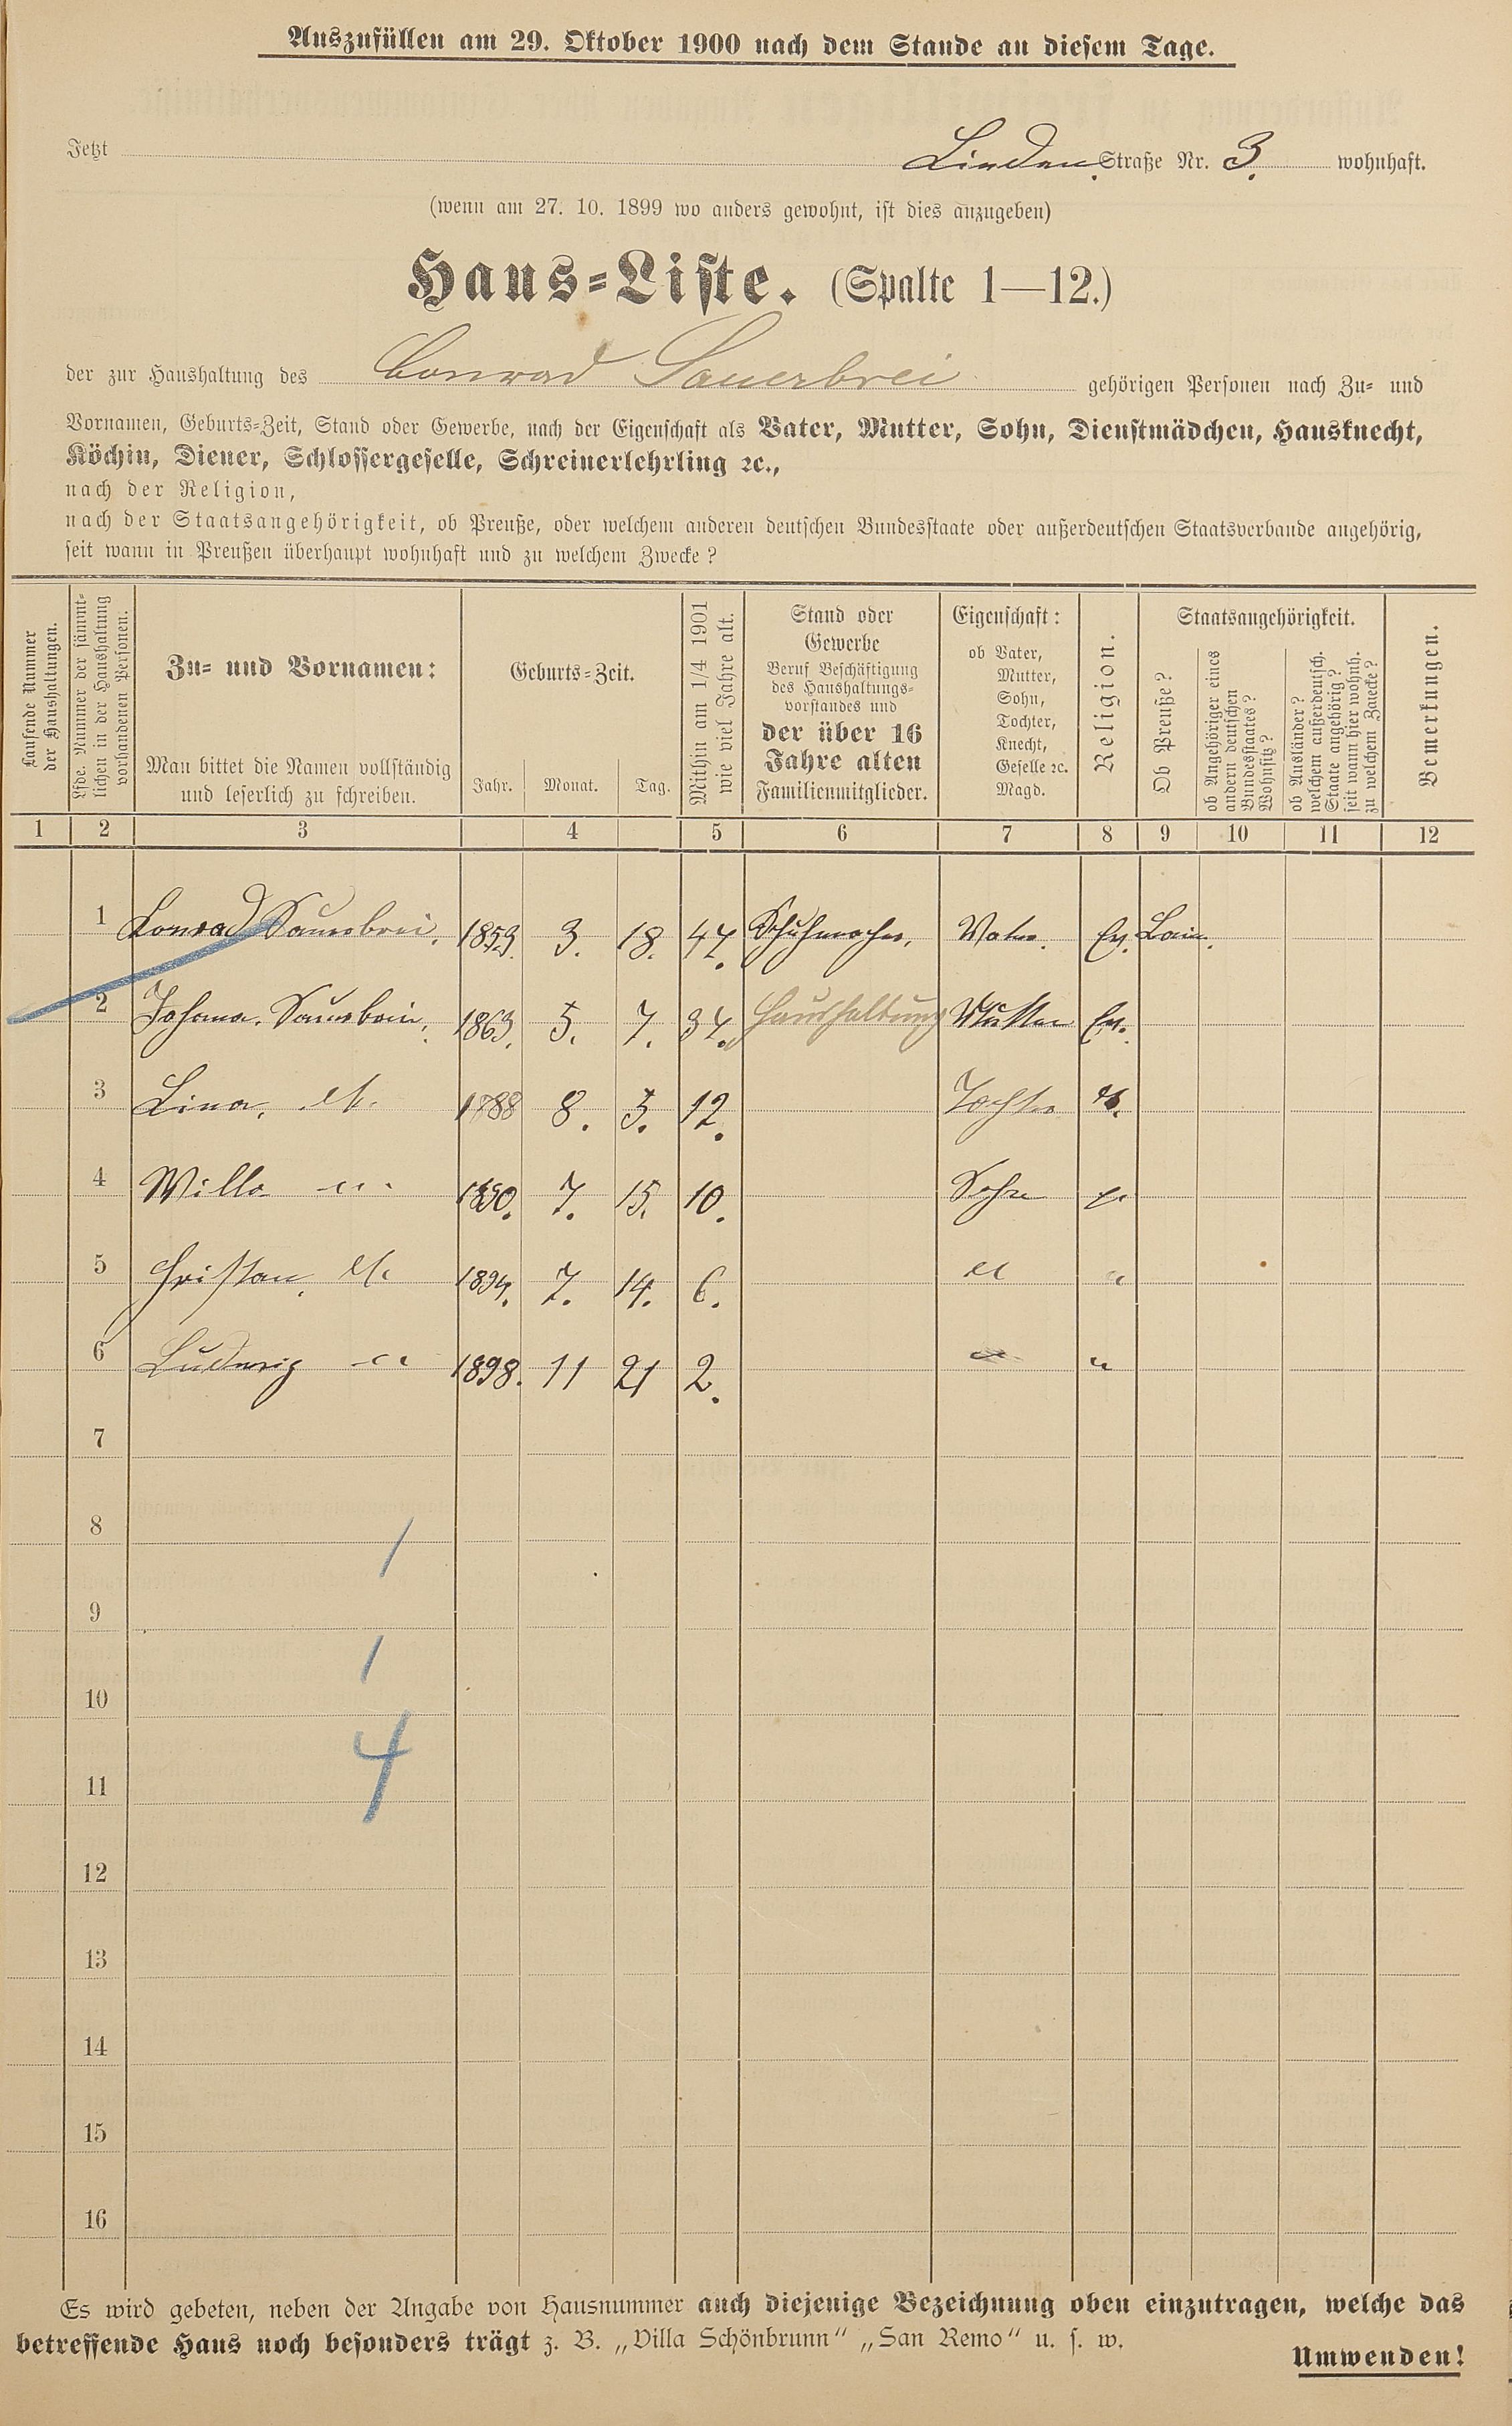 Auszufüllen am 29. Oktober 1900 nach dem Stande an diesem Tage.
Jetzt Linden Straße Nr. 3. wohnhaft.
(wenn am 27. 10. 1899 wo anders gewohnt, ist dies anzugeben)
Haus-Liste. (Spalte 1—12.)
der zur Haushaltung des Conrad Sauerbrei gehörigen Personen nach Zu- und
Vornamen, Geburts-Zeit, Stand oder Gewerbe, nach der Eigenschaft als Vater, Mutter, Sohn, Dienstmädchen, Hausknecht,
Köchin, Diener, Schlossergeselle, Schreinerlehrling ꝛc.,
nach der Religion,
nach der Staatsangehörigkeit, ob Preuße, oder welchem anderen deutschen Bundesstaate oder außerdeutschen Staatsverbande angehörig,
seit wann in Preußen überhaupt wohnhaft und zu welchem Zwecke?
Laufende Nummer
der Haushaltungen.
Lfde. Nummer der sämmt-
lichen in der Haushaltung
vorhandenen Personen.
Zu- und Vornamen:
Man bittet die Namen vollständig
und leserlich zu schreiben.
Geburts-Zeit.
Jahr. Monat. Tag.
Mithin am 1/4 1901
wie viel Jahre alt.
Stand oder
Gewerbe
Beruf Beschäftigung
des Haushaltungs-
vorstandes und
der über 16
Jahre alten
Familienmitglieder.
Eigenschaft:
ob Vater,
Mutter,
Sohn,
Tochter,
Knecht,
Geselle ꝛc.
Magd.
Religion.
Staatsangehörigkeit.
Ob Preuße?
ob Angehöriger eines
andern deutschen
Bundesstaates?
Wohnsitz?
ob Ausländer?
welchem außerdeutsch.
Staate angehörig?
seit wann hier wohnh.
zu welchem Zwecke?
Bemerkungen.
1 2 3 4 5 6 7 8 9 10 11 12
1 Conrad Sauerbrei. 1853. 3. 18. 47. Schuhmacher. Vater. Ev.
2 Johanna Sauerbrei. 1863. 5. 7. 37. Haushaltung Mutter Ev.
3 Lina. 1888 8. 5. 12. Tochter
4 Willo " 1890. 7. 15. 10. Sohn
5 Cristan. 1894. 7. 14. 6. " "
6 Ludwig " 1898. 11 21 2. " "
7
8 1
9
1
10
4
11
12
13
14
15
16
Es wird gebeten, neben der Angabe von Hausnummer auch diejenige Bezeichnung oben einzutragen, welche das
betreffende Haus noch besonders trägt z. B. „Villa Schönbrunn“ „San Remo“ u. s. w.
Umwenden!